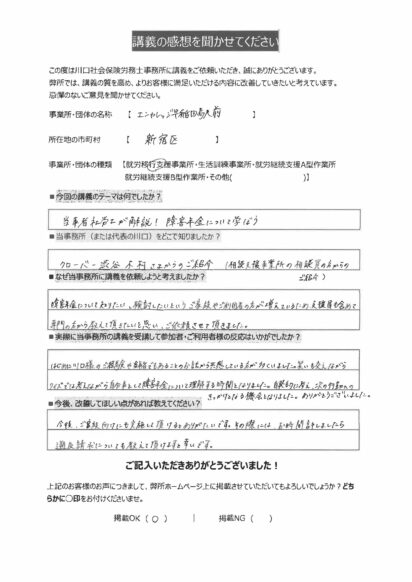 講義の感想を聞かせてください
この度は川口社会保険労務士事務所に講義をご依頼いただき、誠にありがとうございます。
弊所では、講義の質を高め、よりお客様に満足いただける内容に改善していきたいと考えています。
忌憚のないご意見を聞かせてください。
事業所・団体の名称 【 エンカレッジ早稲田駅前 】
所在地の市町村 【 新宿区 】
事業所・団体の種類 【就労移行支援事業所・生活訓練事業所・就労継続支援A型作業所
就労継続支援B型作業所・その他( )】
■今回の講義のテーマは何でしたか？
当事者社労士が解説！ 障害年金について学ぼう
■当事務所（または代表の川口）をどこで知りましたか？
クローバー渋谷 木村さまからのご紹介 （相談支援事業所の相談員の方からの
ご紹介）
■なぜ当事務所に講義を依頼しようと考えましたか？
障害年金について知りたい、検討したいというご家族やご利用者の方が増えているため支援員も含めて
専門の方から教えて頂きたいと思い、ご依頼させて頂きました。
■実際に当事務所の講義を受講して参加者・ご利用者様の反応はいかがでしたか？
川口様のご経験
クイズでは考えながら
障害年金について理解する時間となりました。
きっかけとなる機会となりました。ありがとうございました。
■今後、改善してほしい点があれば教えてください？
今後、ご家族向けにも実施して頂けるとありがたいです。その際には、お時間許しましたら
遡及請求についても教えて頂けますと幸いです。
ご記入いただきありがとうございました！
上記のお客様のお声につきまして、弊所ホームページ上に掲載させていただいてもよろしいでしょうか？どち
らかに〇印をお付けくださいませ。
掲載OK （ ○ ） | 掲載NG （ ）